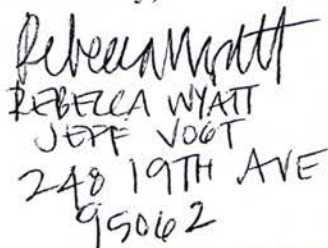 Rebecca Wyatt
REBECCA WYATT
JEFF VOGT
248 19TH AVE
95062